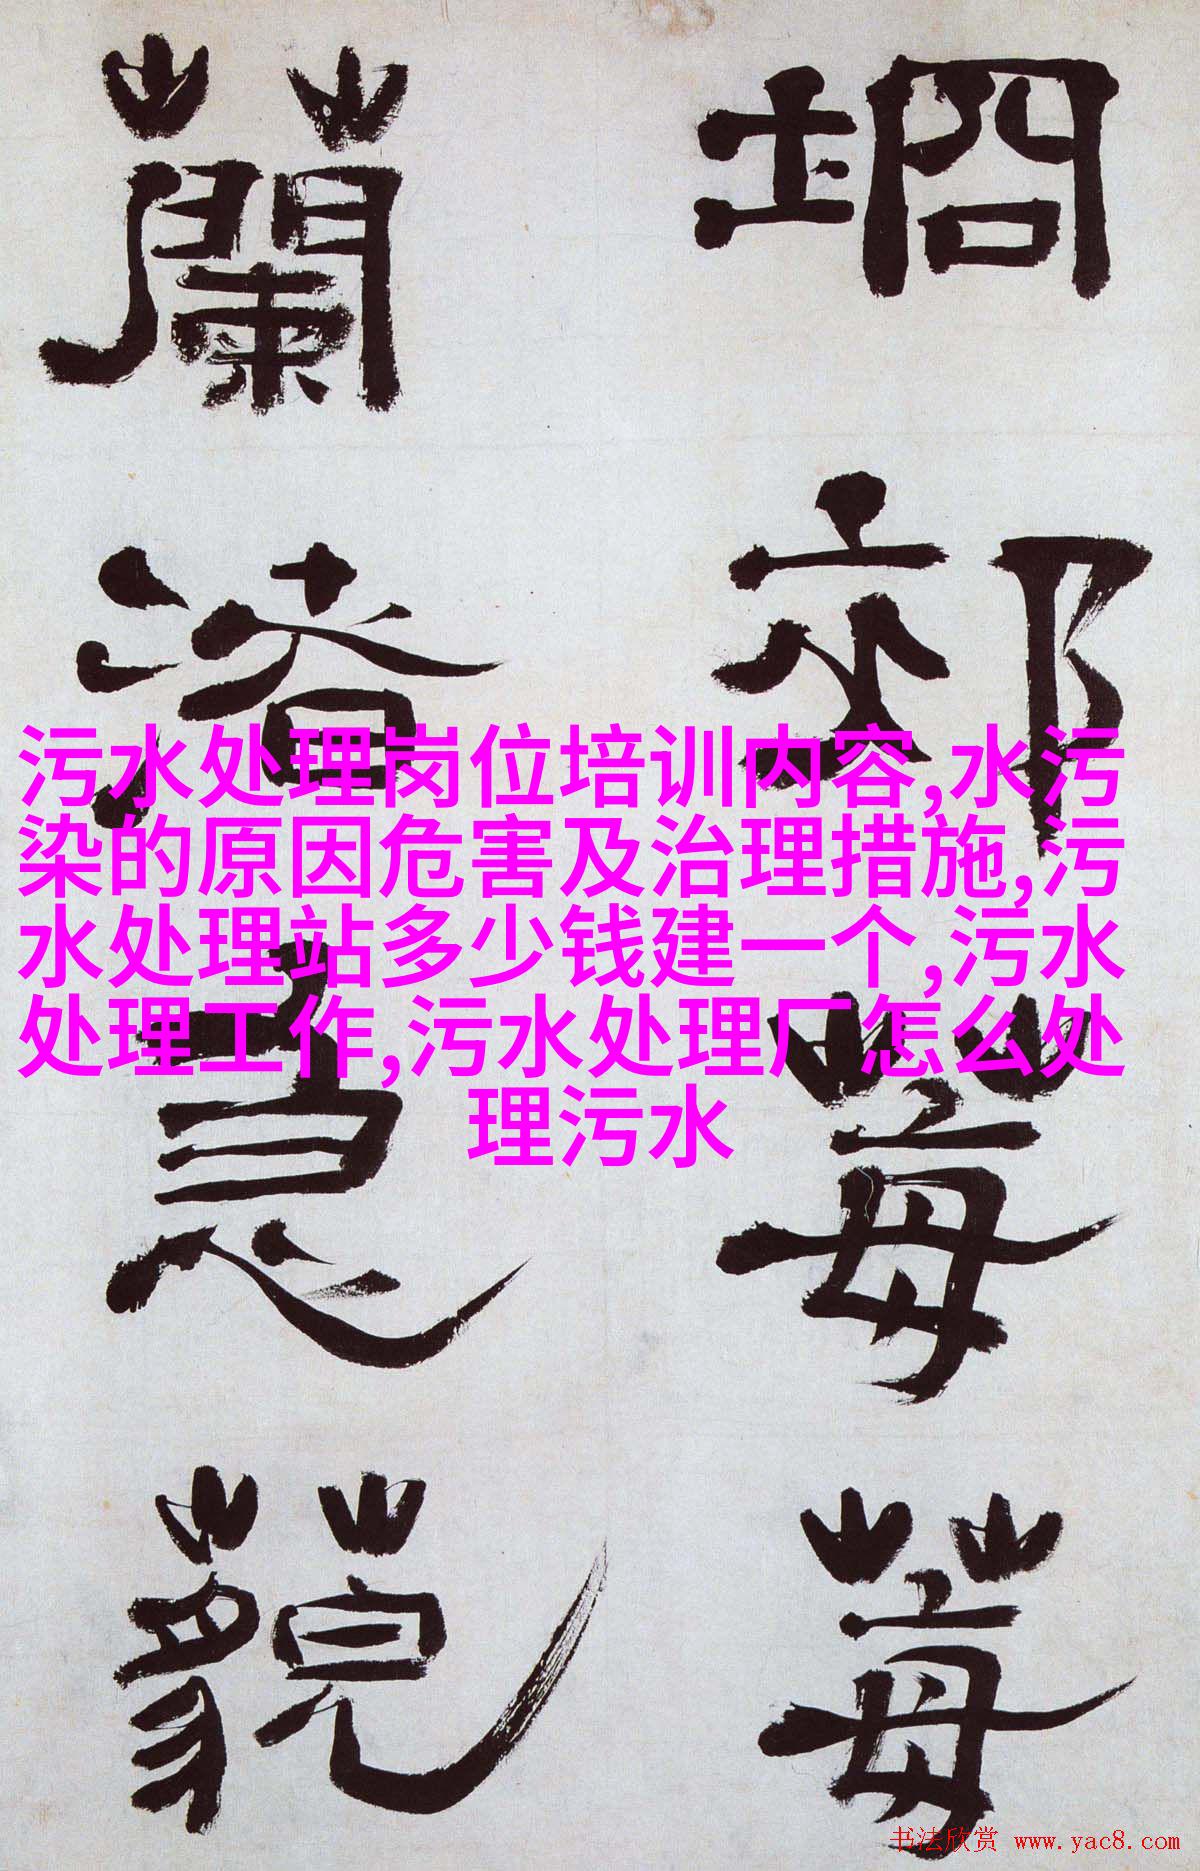 坰郊莓莓
蘭渚急藐
污水处理岗位培训内容,水污
染的原因危害及治理措施,污
水处理站多少钱建一个,污水
处理工作,污水处理厂怎么处
理污水
书法欣赏 www.yac8.com